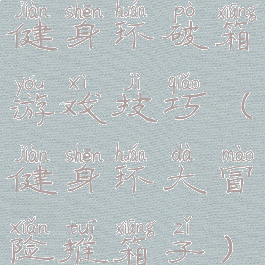 jiàn shēn huán pò xiāng
健身环破箱
yóu xì jì qiǎo
游戏技巧(
jiàn shēn huán dà mào
健身环大冒
xiǎn tuī xiāng zǐ
险推箱子)